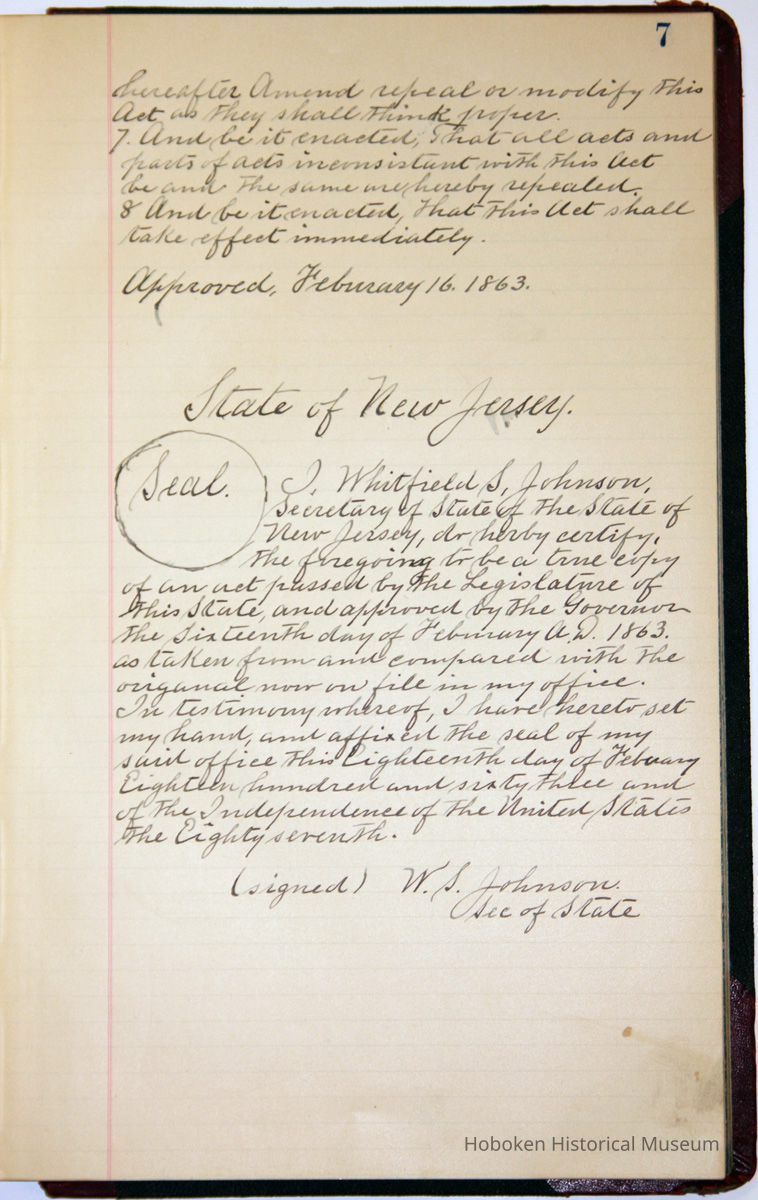 7
hereafter Amend repeal or modify this
Act as they shall think proper.
7. And be it enacted, That all acts and
parts of acts inconsistant with this Act
be and the same are hereby repealed.
8 And be it enacted, that this Act shall
take effect immediately.
Approved, Feburary 16. 1863.
State of New Jersey.
Seal.
I, Whitfield S, Johnson,
Secretary of State of the State of
New Jersey, do herby certify,
the foregoing to be a true copy
of an act passed by the Legislature of
this State, and approved by the Governor
the Sixteenth day of Feburary A.D. 1863.
as taken from and compared with the
origanal now on file in my office.
In testimony whereof, I have hereto set
my hand, and affixed the seal of my
said office this Eighteenth day of Febuary
Eighteen hundred and sixty three and
of the Independence of the United States
the Eighty seventh.
(signed) W. S. Johnson.
Sec of State
Hoboken Historical Museum